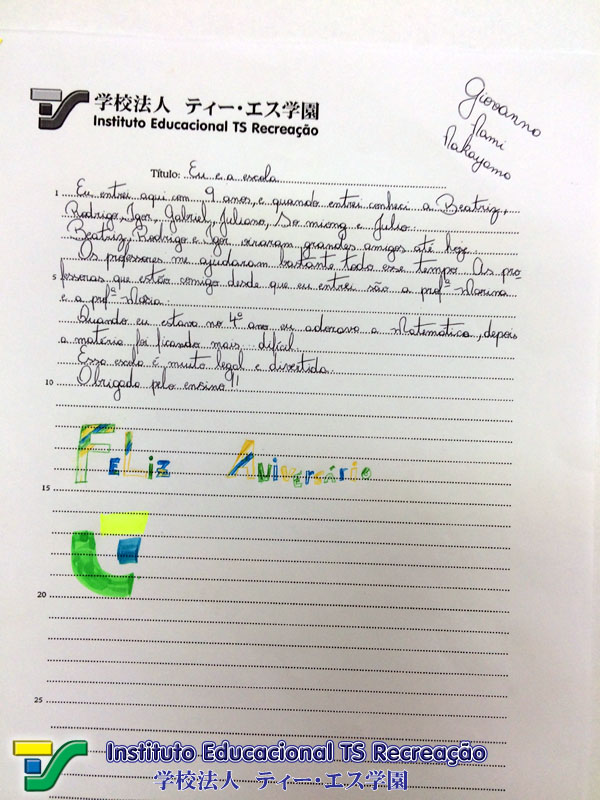 学校法人 ティー・エス学園
Instituto Educacional TS Recreação
Giovanna
Nami
Nakayama
Título: Eu e a escola
1 Eu entrei aqui com 9 anos, e quando entrei conheci a Beatriz,
Rodrigo, Igor, Gabriel, Juliano, So miong e Julio.
Beatriz, Rodrigo e Igor viraram grandes amigos até hoje.
Os professores me ajudaram bastante todo esse tempo. As pro-
5 fessoras que estão comigo desde que eu entrei são a profª Marina
e a profª Maria.
Quando eu estava no 4º ano eu adorava a Matemática, depois
a matéria foi ficando mais difícil.
Essa escola é muito legal e divertida.
10 Obrigada pelo ensino!!
Feliz Aniversário
15
20
25
Instituto Educacional TS Recreação
学校法人 ティー・エス学園